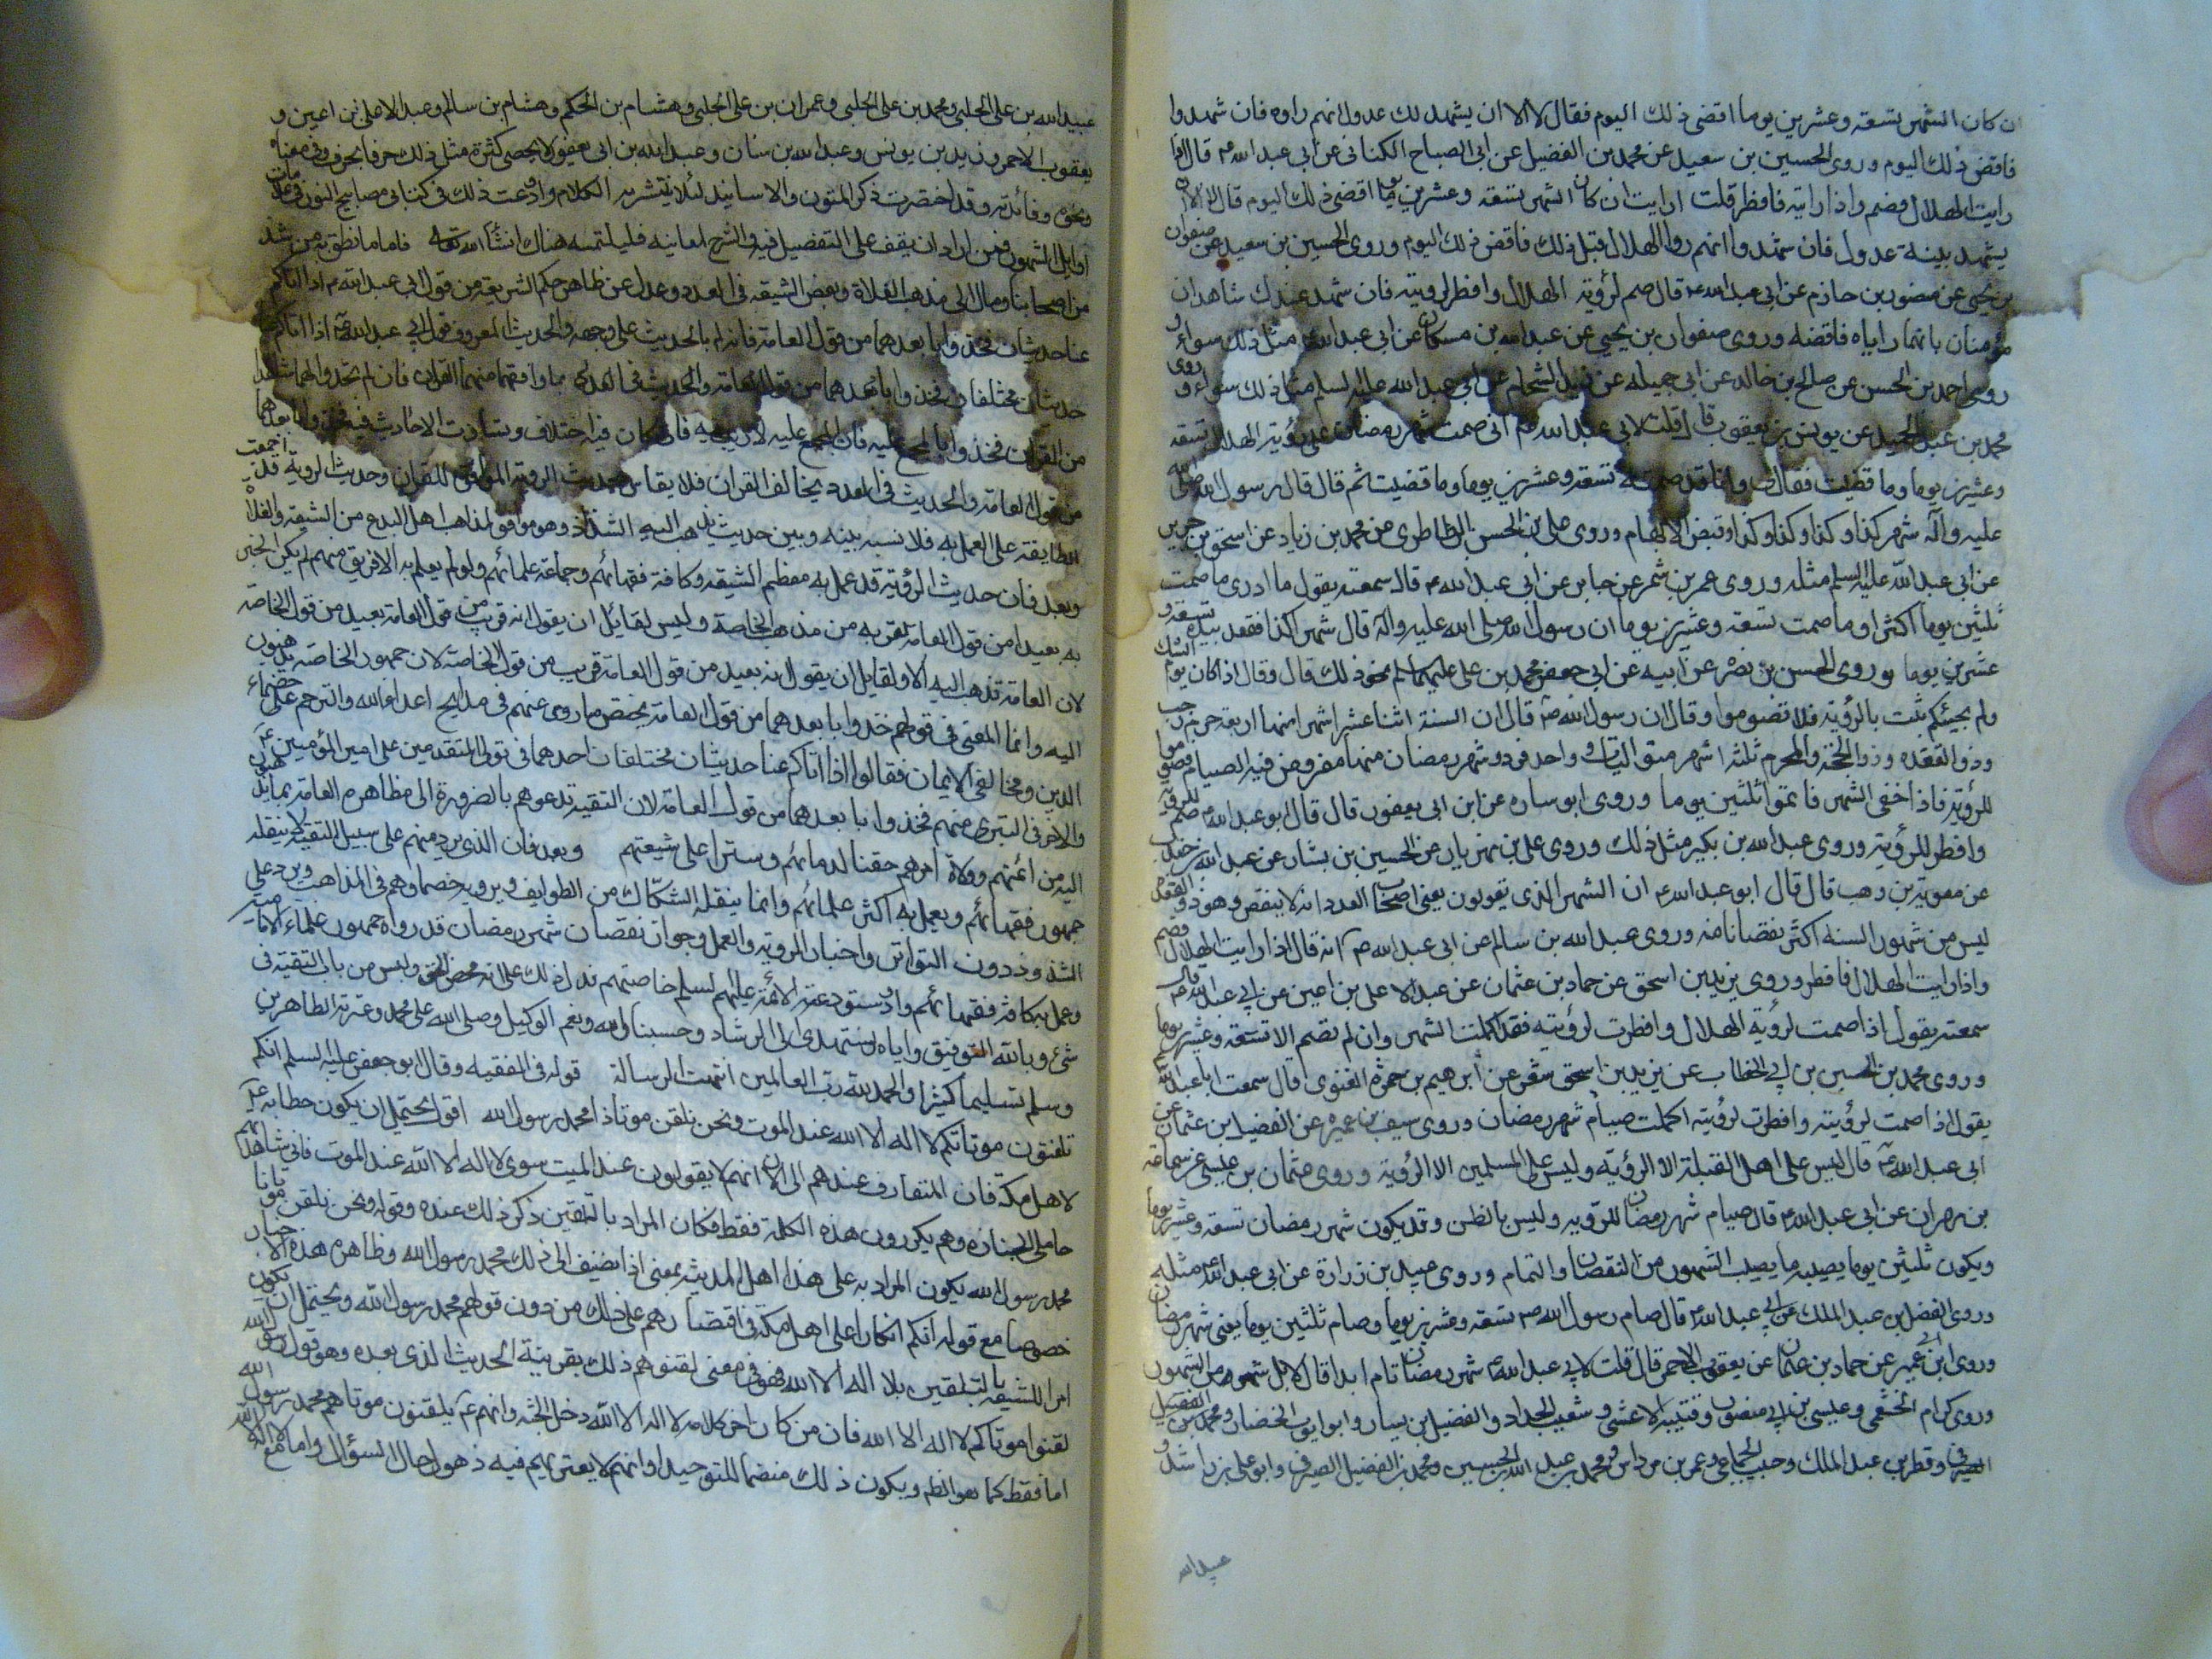 ن كان الشهر تسعة وعشرين يوما اقضى ذلك اليوم فقال لا الا ان يشهد لك عدول انهم راوه فان شهدوا
فاقض ذلك اليوم وروى الحسين بن سعيد عن محمد بن الفضيل عن ابى الصباح الكنانى عن ابى عبد الله ع قال اذا
رايت الهلال فصم واذا رايته فافطر قلت ارايت ان كان الشهر تسعة وعشرين يوما اقضى ذلك اليوم قال لا الا ان
يشهد بينة عدول فان شهدوا انهم راوا الهلال قبل ذلك فاقض ذلك اليوم وروى الحسين بن سعيد عن صفوان
بن يحيى عن منصور بن حازم عن ابى عبد الله ع قال صم لرؤية الهلال وافطر لرويته فان شهد عندك شاهدان
مؤمنان بانهما راياه فاقضه وروى صفوان بن يحيى عن عبد الله بن مسكان عن ابى عبد الله ع مثل ذلك سواء و
روى احمد بن الحسن عن صلح بن خالد عن ابى جميله عن زيد الشحام عن ابى عبد الله عليه السلم مثل ذلك سواء و روى
محمد بن عبد الحميد عن يونس بن يعقوب قال قلت لابى عبد الله ع انى صمت شهر رمضان على رؤية الهلال تسعة
وعشرين يوما وما قضيت فقال وانا قد صمت تسعة وعشرين يوما وما قضيت ثم قال قال رسول الله صلى الله
عليه وآله شهر كذا وكذا وكذا وكذا وقبض الابهام وروى على بن الحسن الطاطرى عن محمد بن زياد عن اسحق بن جرير
عن ابى عبد الله عليه السلم مثله وروى عمر بن شمر عن جابر عن ابى عبد الله ع قال سمعته يقول ما ادرى ما صمت
ثلثين يوما اكثر او ما صمت تسعة وعشرين يوما ان رسول الله صلى الله عليه وآله قال شهر كذا فعقد بيده تسعة و
عشرين يوما وروى الحسن بن نصر عن ابيه عن ابى جعفر محمد بن على عليهما السلم نحو ذلك قال وقال اذا كان يوم الشك
ولم يجيئكم ثبت بالرؤية فلا تصوموا وقال ان رسول الله ص قال ان السنة اثنا عشر شهرا منها اربعة حرم رجب
وذو القعده وذو الحجة والمحرم ثلثة اشهر متواليات وواحد فرد وشهر رمضان منها مفروض فيه الصيام فصوموا
للرؤية فاذا خفى الشهر فاتموا ثلثين يوما وروى ابو ساره عن ابن ابى يعفور قال قال ابو عبد الله ع صم للرؤية
وافطر للرؤية وروى عبد الله بن بكير مثل ذلك وروى على بن مهزيار عن الحسين بن بشار عن عبد الله بن جندب
عن معوية بن وهب قال قال ابو عبد الله ع ان الشهر الذى يقولون يعنى اصحاب العدد انه لا ينقص وهو ذو القعدة
ليس من شهور السنة اكثر نقصانا منه وروى عبد الله بن سالم عن ابى عبد الله ع انه قال اذا رايت الهلال فصم
واذا رايت الهلال فافطر وروى يزيد بن اسحق عن حماد بن عثمان عن عبد الاعلى بن اعين عن ابى عبد الله ع قال
سمعته يقول اذا صمت لرؤية الهلال وافطرت لرؤيته فقد اكملت الشهر وان لم تصم الا تسعة وعشرين يوما
وروى محمد بن الحسين بن ابى الخطاب عن يزيد بن اسحق شعر عن ابرهيم بن حمزة الغنوى قال سمعت ابا عبد الله ع
يقول اذا صمت لرؤيته وافطرت لرؤيته اكملت صيام شهر رمضان وروى سيف بن عميره عن الفضيل بن عثمان عن
ابى عبد الله ع قال ليس على اهل القبلة الا الرؤية وليس على المسلمين الا الرؤية وروى عثمان بن عيسى عن سماعة
بن مهران عن ابى عبد الله ع قال صيام شهر رمضان للرؤيه وليس بالظن وقد يكون شهر رمضان تسعة وعشرين يوما
ويكون ثلثين يوما يصيبه ما يصيب الشهور من النقصان والتمام وروى عبيد بن زرارة عن ابى عبد الله ع مثله
وروى الفضل بن عبد الملك عن ابى عبد الله ع قال صام رسول الله ص تسعة وعشرين يوما وصام ثلثين يوما يعنى شهر رمضان
وروى ابن ابى عمير عن حماد بن عثمان عن يعقوب الاحمر قال قلت لابى عبد الله ع شهر رمضان تام ابدا قال لا بل شهر من الشهور
وروى كرام الخثعمى وعيسى بن ابى منصور وقتيبة الاعشى وشعيب الحداد والفضيل بن يسار وابو ايوب الخضار ومحمد بن الفضيل
الصيرفى وفطر بن عبد الملك وحبيب الجماعى وعمر بن مرداس ومحمد بن عبد الله بن الحسين ومحمد بن الفضيل الصيرفى وابو على بن راشد و
عبيد الله
عبيد الله بن على الحلبى ومحمد بن على الحلبى وعمران بن على الحلبى وهشام بن الحكم وهشام بن سالم وعبد الاعلى بن اعين و
يعقوب الاحمر وزيد بن يونس وعبد الله بن سنان وعبد الله بن ابى يعفور لا يحصى كثرة مثل ذلك حرفا بحرف وفى معناه
ونحوه وفائدته وقد اختصرت ذكر المتون والاسانيد لئلا ينتشر به الكلام واودعت ذلك فى كتابى مصابيح النور فى علامات
اوايل الشهور فمن اراد ان يقف على التفصيل فيه والشرح لمعانيه فليلتمسه هناك انشأ الله تعالى فاما ما نطق به من شذ
من اصحابنا ومال الى مذهب الغلاة وبعض الشيعه فى العدد وعدل عن ظاهر حكم الشريعة من قول ابى عبد الله ع اذا اتاكم
عنا حديثان فخذوا بابعدهما من قول العامة فانه لم يات بالحديث على وجهه والحديث المعروف قول ابى عبد الله ع اذا اتاكم عنا
حديثان مختلفان فخذوا بابعدهما من قول العامة والحديث فى العدد فان لم تجدوا لهما شاهدا
من القرآن فخذوا بالمجمع عليه فان المجمع عليه لا ريب فيه فان كان فيه اختلاف وتساوت الاحاديث فيه فخذوا بابعدهما
من قول العامة والحديث فى العدد يخالف القران فلا يقاس بحديث الروية الموافق للقران وحديث الروية قد اجمعت
الطايفة على العمل به فلا نسبة بينه وبين حديث يذهب اليه الشذاذ وهو موافق لمذاهب اهل البدع من الشيعة والغلاة
وبعد فان حديث الرؤية قد عمل به معظم الشيعه وكافة فقهائهم وجماعة علمائهم ولو لم يعلم به الا فريق منهم لم يكن الخبر
به بعيدا من قول العامة لقربه من مذهب الخاصة وليس لقائل ان يقول انه قريب من قول العامة بعيد من قول الخاصة
لان العامة تذهب اليه الا ولقايل ان يقول انه بعيد من قول العامة قريب من قول الخاصة لان جمهور الخاصة يذهبون
اليه وانما المعنى فى قولهم خذوا بابعدهما من قول العامة يختص ما روى عنهم فى مدايح اعداء الله والترحم على خصماء
الدين ومخالفى الايمان فقالوا اذا اتاكم عنا حديثان مختلفان احدهما فى تولى المتقدمين على امير المؤمنين ع
والاخر فى التبرى منهم فخذوا بابعدهما من قول العامة لان التقية تدعوهم بالضرورة الى مظاهرة العامة بما يذهبون
اليه من ائمتهم وولاة امرهم حقنا لدمائهم وسترا على شيعتهم وبعد فان الذى يرد منهم على سبيل التقية لا ينقله
جمهور فقهائهم ويعمل به اكثر علمائهم وانما ينقله الشكاك من الطوايف ويرويه خصماوهم فى المذاهب ويرد على
الشذوذ دون التواتر واخبار الرويه والعمل وجواز نقصان شهر رمضان قد رواه جمهور علماء الاماميه
وعمل به كافة فقهائهم واستودعته الائمة عليهم السلم خاصتهم فدل ذلك على انه محض الحق وليس من باب التقية فى
شئ وبالله التوفيق واياه نستهدى الى الرشاد وحسبنا الله ونعم الوكيل وصلى الله على محمد وعترته الطاهرين
وسلم تسليما كثيرا والحمد لله رب العالمين انتهت الرسالة قوله فى الفقيه وقال ابو جعفر عليه السلم انكم
تلقنون موتاكم لا اله الا الله عند الموت ونحن نلقن موتانا محمد رسول الله اقول يحتمل ان يكون خطابه ع
لاهل مكة فان المتعارف عندهم الى الان انهم لا يقولون عند الميت سوى لا اله الا الله عند الموت فانى شاهدتهم
حاملى الجنازه وهم يكررون هذه الكلمة فقط فكان المراد بالتلقين ذكر ذلك عنده وقوله ونحن نلقن موتانا
محمد رسول الله يكون المراد به على هذا اهل المدينه بمعنى انا نضيف الى ذلك محمد رسول الله وظاهره هذه الاخبار
خصوصا مع قوله انكم انكارا على اهل مكة فى اقتصارهم على ذلك من دون قولهم محمد رسول الله ويحتمل ان يكون
امرا للشيعة بالتلقين بلا اله الا الله فهو فى معنى لقنوهم ذلك بقرينة الحديث الذى بعده وهو قول رسول الله
لقنوا موتاكم لا اله الا الله فان من كان اخر كلامه لا اله الا الله دخل الجنة وانهم ع يلقنون موتاهم محمد رسول الله
اما فقط كما هو الظاهر ويكون ذلك منضما للتوحيد او انهم لا يعتريهم فيه ذهول حال السؤال واما مع لا اله الا الله